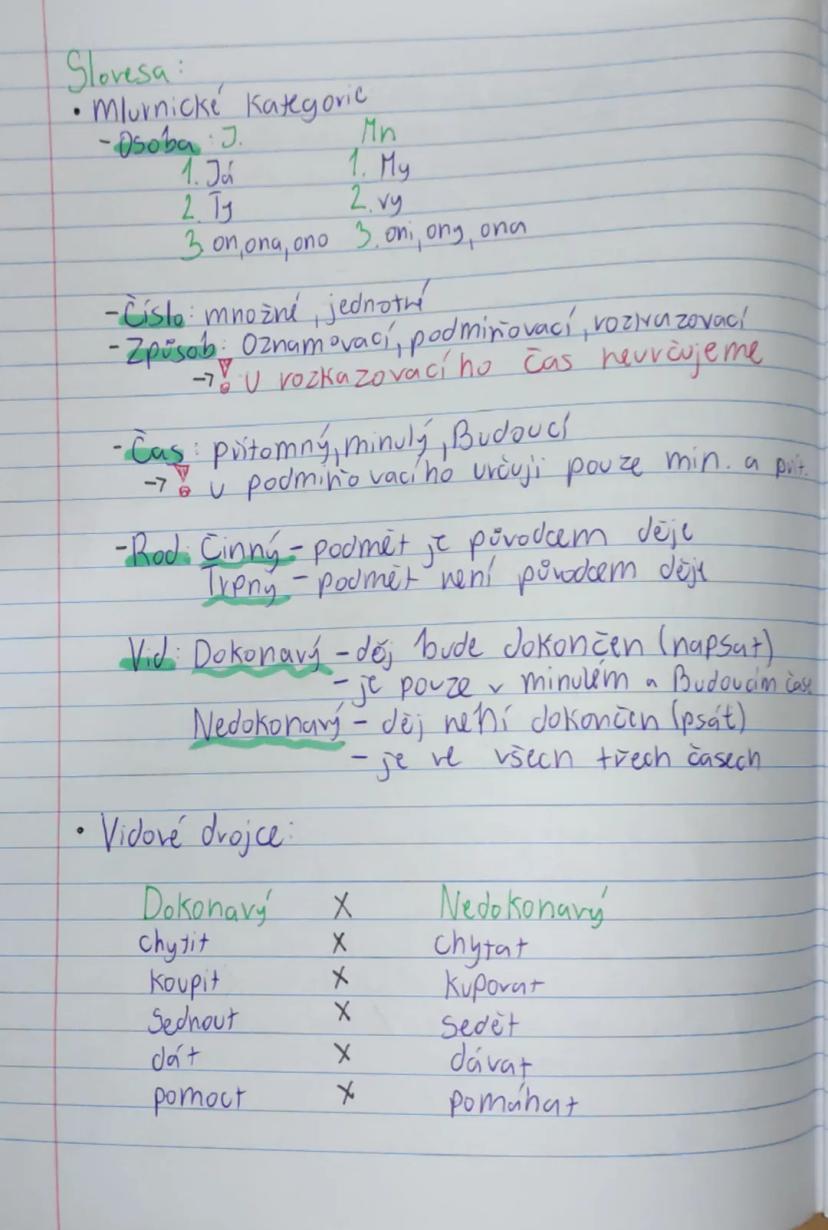 Slovesa:
• Mluvnické kategorie
- Osoba: J. Mn
1. Já 1. My
2. Ty 2. vy
3 on, ona, ono 3. oni, ony, ona
- Číslo: množné, jednotné
- Způsob: Oznamovací, podmiňovací, rozkazovací
→ ! U rozkazovacího čas neurčujeme
- Čas: přítomný, minulý, Budoucí
→ ! U podmiňovacího určuji pouze min. a přít.
- Rod: Činný - podmět je původcem děje
Trpný - podmět není původcem děje
Vid: Dokonavý - děj bude dokončen (napsat)
- je pouze v minulém a Budoucím čase
Nedokonavý - děj není dokončen (psát)
- je ve všech třech časech
• Vidové dvojce:
Dokonavý X Nedokonavý
chytit X chytat
koupit X kupovat
Sednout X sedět
dát X dávat
pomoct X pomáhat